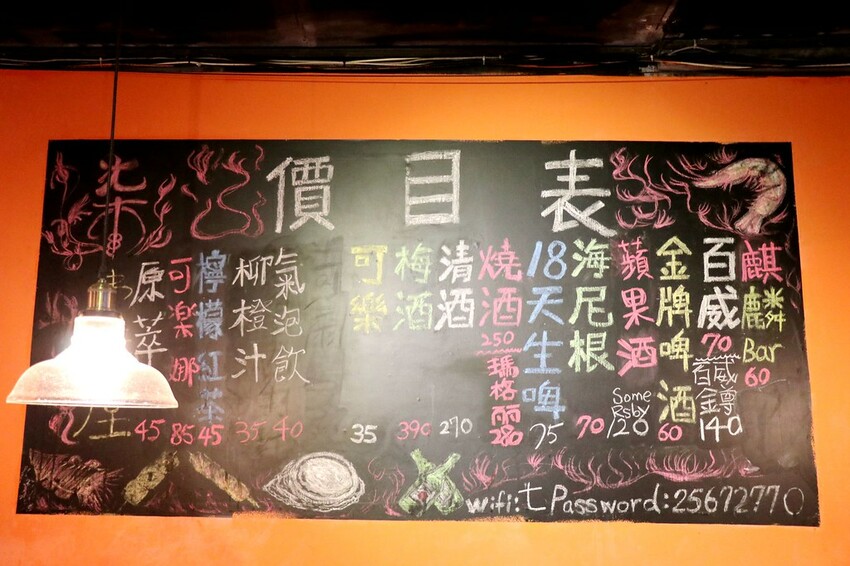 價目表
麒麟Bar 60
百威 70
百威鐏 140
金牌啤酒 60
蘋果酒 Some Rsby 120
海尼根 70
18天生啤 75
燒酒 250
瑪格麗 280
清酒 270
梅酒 390
可樂 35
氣泡飲 40
柳橙汁 35
檸檬紅茶 45
可樂娜 85
原萃 45
柒
wifi:t Password:25672770